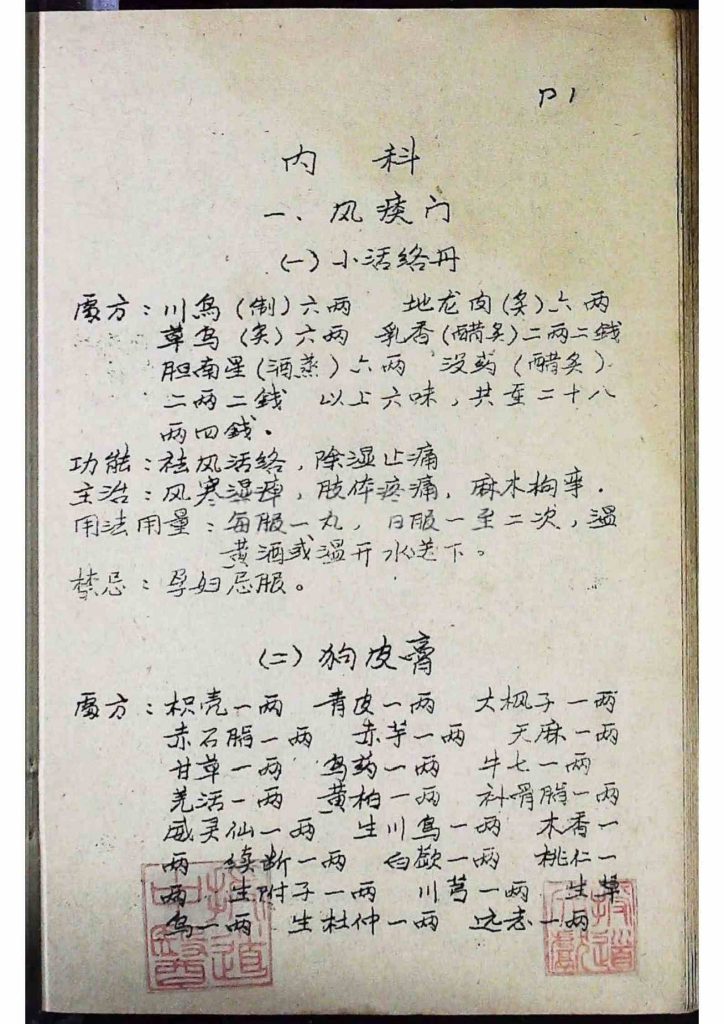 P1
内 科
一、风痰门
(一)小活络丹
處方：川烏(制)六两 地龙肉(炙)六两
草乌(炙)六两 乳香(醋炙)二两二錢
胆南星(酒蒸)六两 没药(醋炙)
二两二錢 以上六味，共重二十八
两四錢.
功能：祛风活络，除湿止痛
主治：风寒湿痺，肢体疼痛，麻木拘挛.
用法用量：每服一丸，日服一至二次，温
黄酒或温开水送下。
禁忌：孕妇忌服。
(二)狗皮膏
處方：枳壳一两 青皮一两 大枫子一两
赤石脂一两 赤芍一两 天麻一两
甘草一两 乌药一两 牛七一两
羌活一两 黄柏一两 补骨脂一两
威灵仙一两 生川乌一两 木香一
两 续断一两 白蔹一两 桃仁一
两 生附子一两 川芎一两 生草
乌一两 生杜仲一两 远志一两